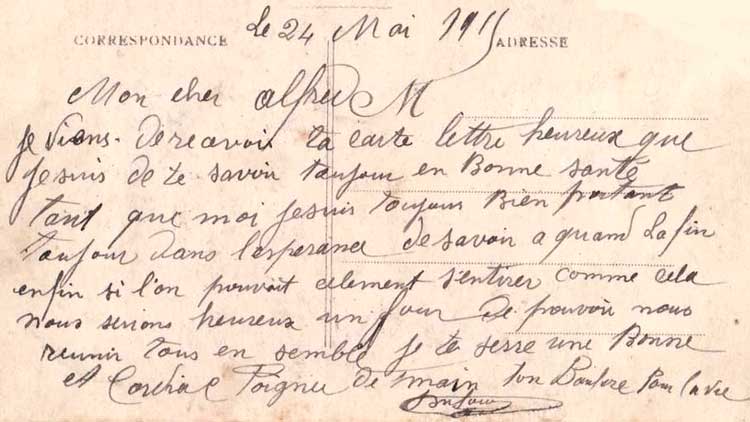 CORRESPONDANCE Le 24 Mai 1915 ADRESSE
Mon cher alfred M
je viens de recavoir ta carte lettre heureux que
je suis de te savoir toujour en Bonne santé
tant que moi je suis toujours Bien portant
toujour dans l'esperance de savoir a quand la fin
enfin si l'on pouvait selement s'entirer comme cela
nous serions heureux un jour de pouvoir nous
reunir tous en semble je te serre une Bonne
et Cordiale Poignee de main ton Pour la vie